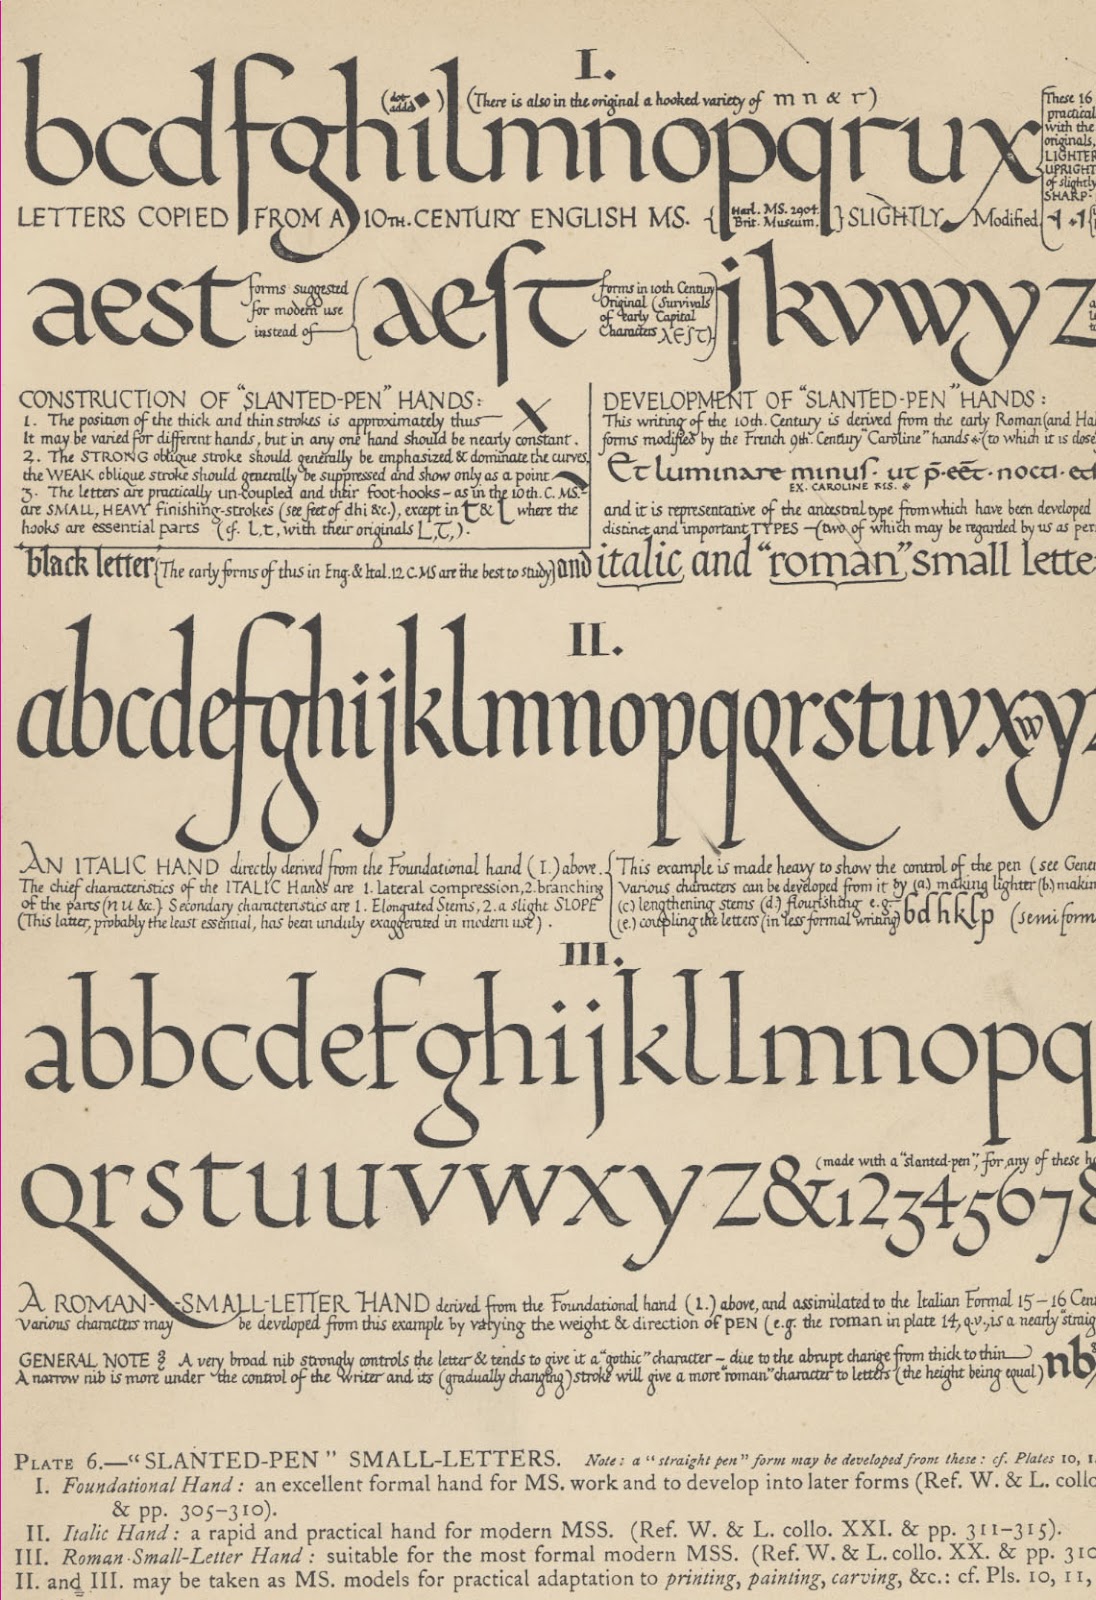 I.
(dot added ◆) (There is also in the original a hooked variety of m n & r)
bcdfghilmnopqrux
These 16
practical
with the
originals,
LIGHTER
UPRIGHT
of slightly
SHARP-
LETTERS COPIED FROM A 10TH. CENTURY ENGLISH MS. {Harl. MS. 2904. Brit. Museum.} SLIGHTLY Modified
aest forms suggested for modern use instead of (aeſt forms in 10th Century Original (Survivals of early Capital Characters AEST)) jkvwyz
CONSTRUCTION OF "SLANTED-PEN" HANDS:
1. The position of the thick and thin strokes is approximately thus
It may be varied for different hands, but in any one hand should be nearly constant.
2. The STRONG oblique stroke should generally be emphasized & dominate the curves,
the WEAK oblique stroke should generally be suppressed and show only as a point
3. The letters are practically un-coupled and their foot-hooks – as in the 10th. C. MS.–
are SMALL, HEAVY finishing-strokes (see feet of dhi &c.), except in t & l where the
hooks are essential parts (cf. l, t, with their originals L, T,).
DEVELOPMENT OF "SLANTED-PEN" HANDS:
This writing of the 10th. Century is derived from the early Roman (and Ha
forms modified by the French 9th. Century "Caroline" hands * (to which it is close
Et luminare minuſ· ut p̄·eēt·nocti·et
EX. CAROLINE MS. *
and it is representative of the ancestral type from which have been developed
distinct and important TYPES – (two of which may be regarded by us as per
"black letter" (The early forms of this in Eng. & Ital. 12 C. MS are the best to study) and italic and "roman" small lette
II.
abcdefghijklmnopqqrstuvxwyz
AN ITALIC HAND directly derived from the Foundational hand (I.) above.
The chief characteristics of the ITALIC Hands are 1. lateral compression, 2. branching
of the parts (n u &c.) Secondary characteristics are 1. Elongated Stems, 2. a slight SLOPE
(This latter, probably the least essential, has been unduly exaggerated in modern use).
This example is made heavy to show the control of the pen (see Gener
Various characters can be developed from it by (a.) making lighter (b.) makin
(c.) lengthening stems (d.) flourishing e.g.– bdhklp (semi form
(e.) coupling the letters (in less formal writing)
III.
abbcdefghijkllmnopq
(made with a "slanted-pen", for any of these h
qrstuuvwxyz&12345678
A ROMAN-SMALL-LETTER HAND derived from the Foundational hand (1.) above, and assimilated to the Italian Formal 15–16 Cen
Various characters may be developed from this example by varying the weight & direction of PEN (e.g. the roman in plate 14, q.v., is a nearly straig
GENERAL NOTE : A very broad nib strongly controls the letter & tends to give it a "gothic" character – due to the abrupt change from thick to thin nb
A narrow nib is more under the control of the writer and its (gradually changing) stroke will give a more "roman" character to letters (the height being equal)
PLATE 6.—"SLANTED-PEN" SMALL-LETTERS. Note: a "straight pen" form may be developed from these: cf. Plates 10, 1
I. Foundational Hand: an excellent formal hand for MS. work and to develop into later forms (Ref. W. & L. collo
& pp. 305–310).
II. Italic Hand: a rapid and practical hand for modern MSS. (Ref. W. & L. collo. XXI. & pp. 311–315).
III. Roman Small-Letter Hand: suitable for the most formal modern MSS. (Ref. W. & L. collo. XX. & pp. 310
II. and III. may be taken as MS. models for practical adaptation to printing, painting, carving, &c.: cf. Pls. 10, 11,